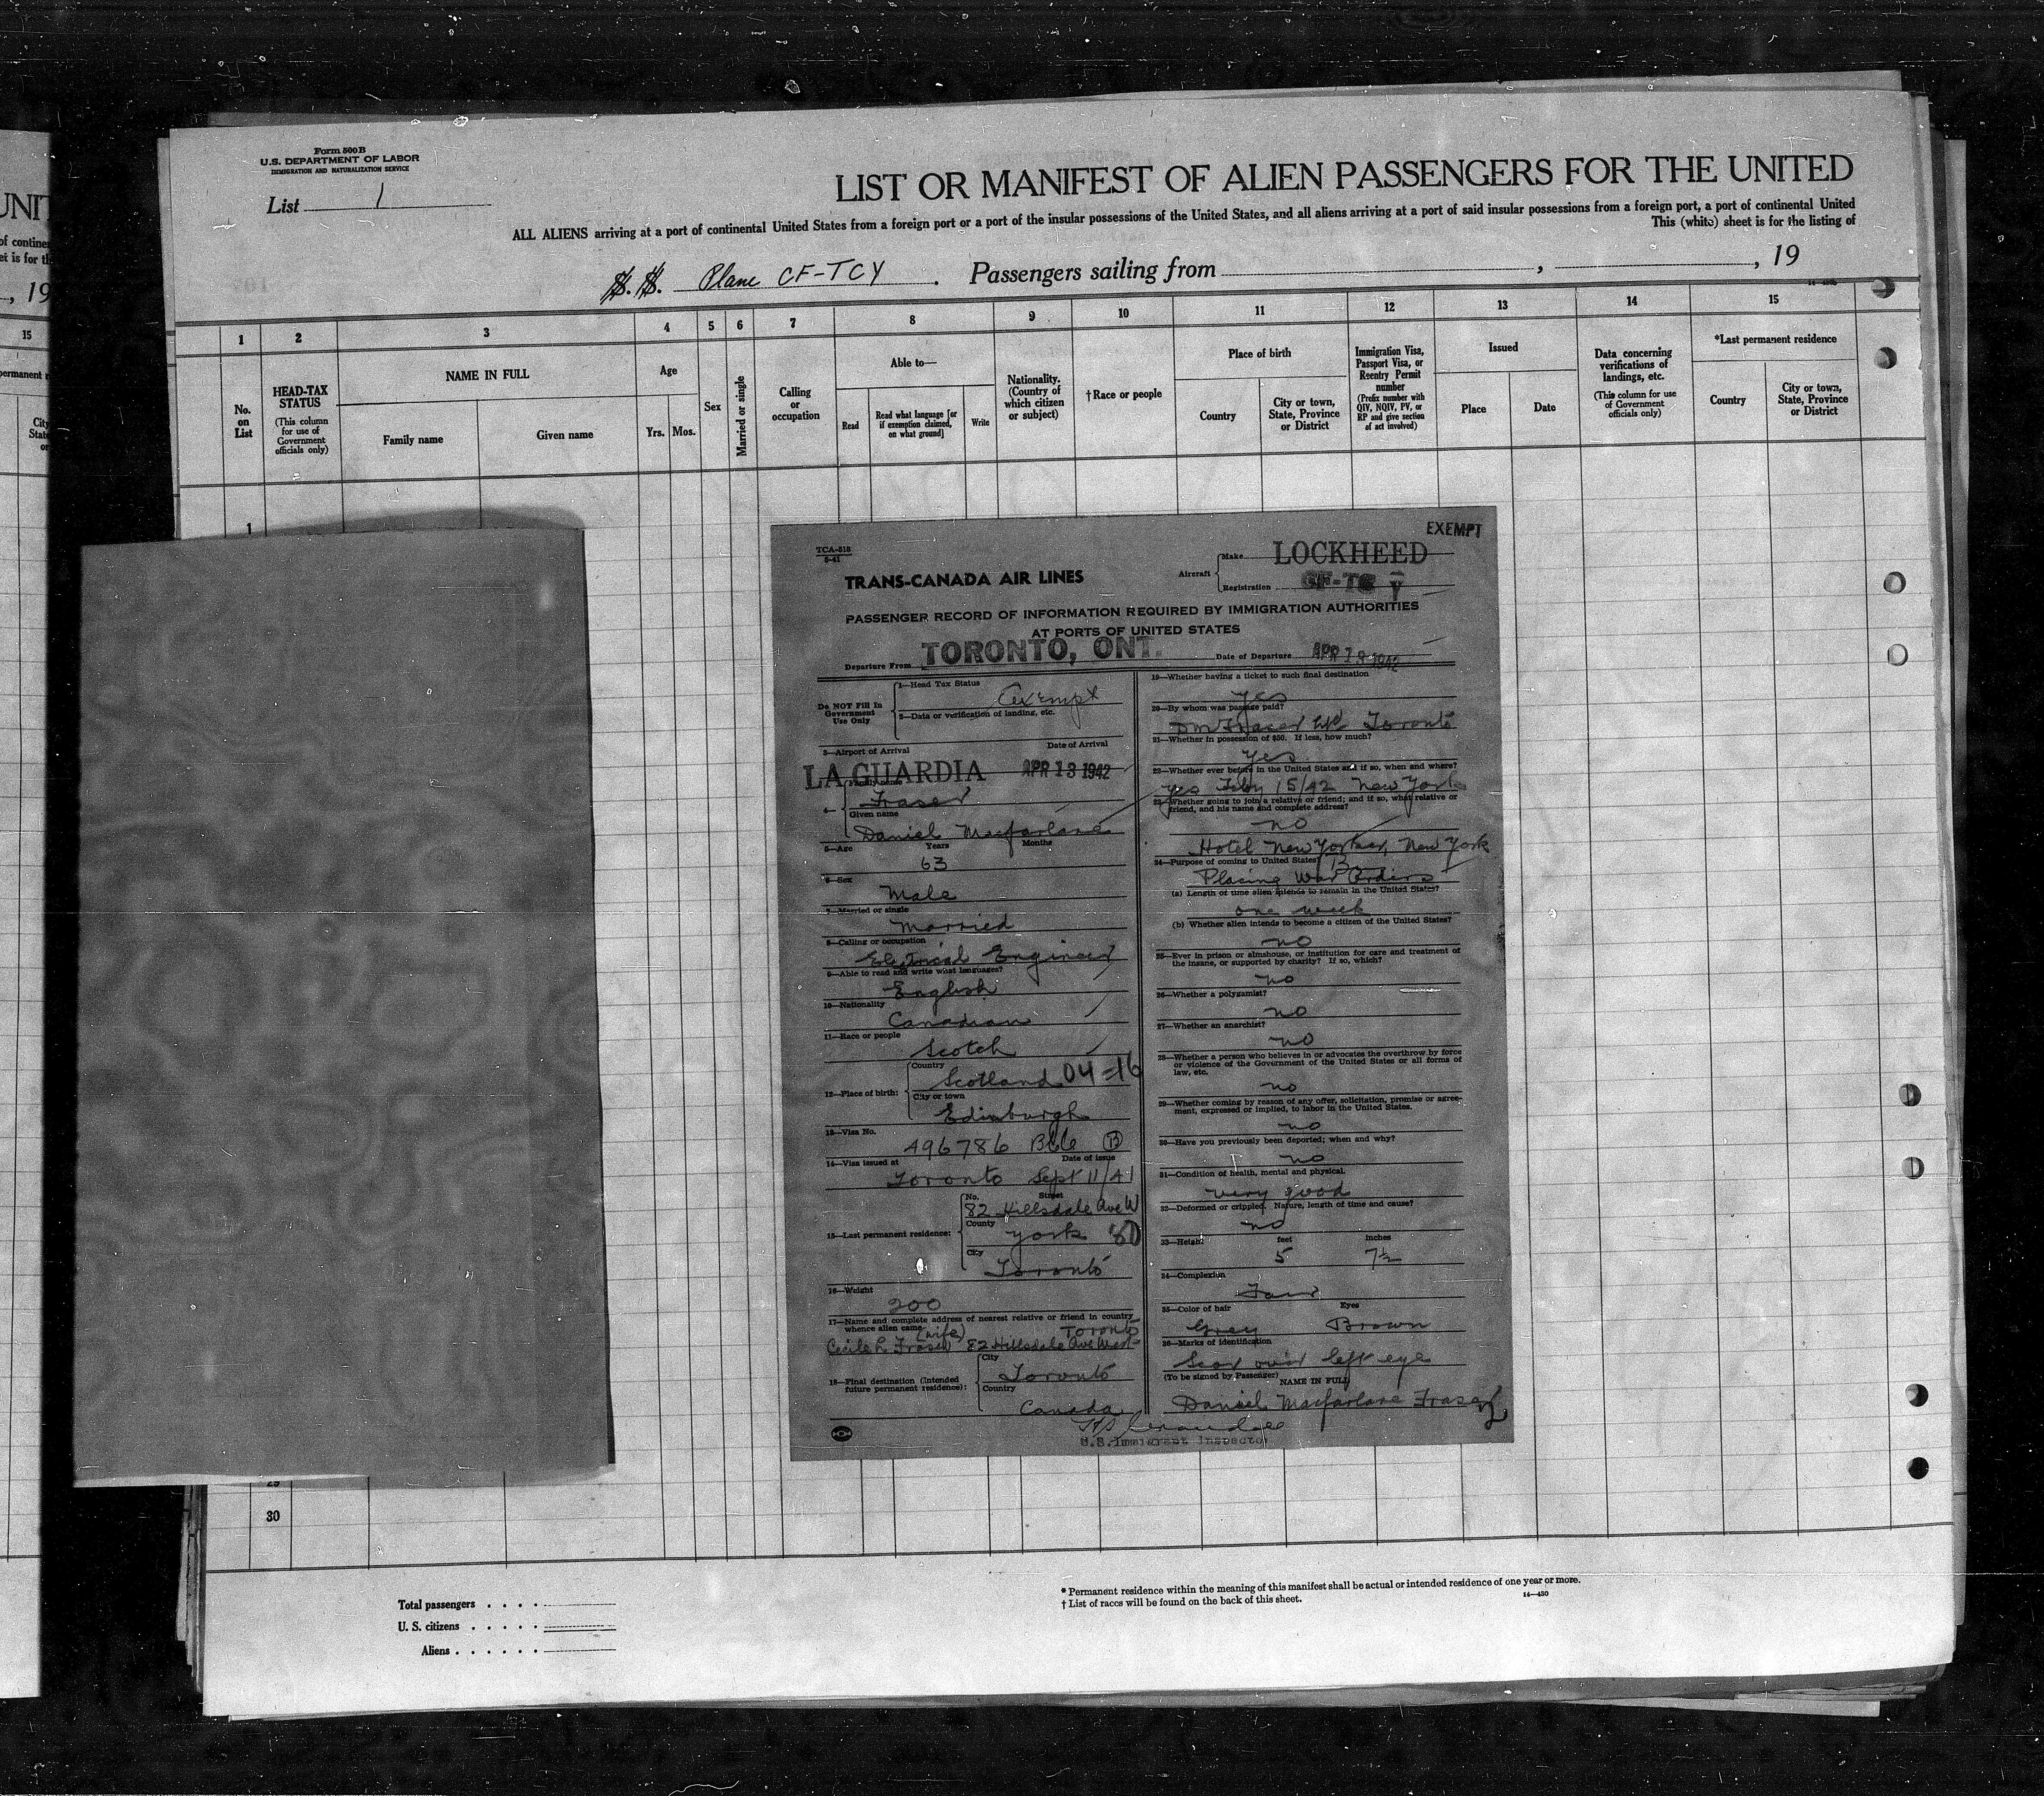 UNIT
of contine
et is for th
, 19
15
ermanent r
City
State
or
Form 500 B
U.S. DEPARTMENT OF LABOR
IMMIGRATION AND NATURALIZATION SERVICE
List 1
LIST OR MANIFEST OF ALIEN PASSENGERS FOR THE UNITED
ALL ALIENS arriving at a port of continental United States from a foreign port or a port of the insular possessions of the United States, and all aliens arriving at a port of said insular possessions from a foreign port, a port of continental United
This (white) sheet is for the listing of
S. S. Plane CF-TCY. Passengers sailing from , , 19
1 2 3 4 5 6 7 8 9 10 11 12 13 14 15
No. on List
HEAD-TAX STATUS
(This column for use of Government officials only)
NAME IN FULL
Family name Given name
Age
Yrs. Mos.
Sex
Married or single
Calling or occupation
Able to—
Read
Read what language [or if exemption claimed, on what ground]
Write
Nationality. (Country of which citizen or subject)
†Race or people
Place of birth
Country
City or town, State, Province or District
Immigration Visa, Passport Visa, or Reentry Permit number
(Prefix number with QIV, NQIV, PV, or RP and give section of act involved)
Issued
Place Date
Data concerning verifications of landings, etc.
(This column for use of Government officials only)
*Last permanent residence
Country
City or town, State, Province or District
1
EXEMPT
TCA-518
5-41
TRANS-CANADA AIR LINES
Aircraft
Make LOCKHEED
Registration CF-TC Y
PASSENGER RECORD OF INFORMATION REQUIRED BY IMMIGRATION AUTHORITIES
AT PORTS OF UNITED STATES
Departure From TORONTO, ONT.
Date of Departure APR 13 1942
Do NOT Fill In Government Use Only
1—Head Tax Status Exempt
2—Data or verification of landing, etc.
3—Airport of Arrival Date of Arrival
LA GUARDIA APR 13 1942
4— Family name
Fraser
Given name
Daniel Macfarlane
5—Age Years Months
63
6—Sex
Male
7—Married or single
Married
8—Calling or occupation
Electrical Engineer
9—Able to read and write what languages?
English
10—Nationality
Canadian
11—Race or people
Scotch
12—Place of birth:
Country
Scotland 04-16
City or town
Edinburgh
13—Visa No.
496786 B
14—Visa issued at Date of issue
Toronto Sept 11/41
15—Last permanent residence:
No. Street
82 Hillsdale Ave W
County
York 80
City
Toronto
16—Weight
200
17—Name and complete address of nearest relative or friend in country whence alien came
(wife) Toronto
Cecile L Fraser 82 Hillsdale Ave West
18—Final destination (Intended future permanent residence):
City
Toronto
Country
Canada
19—Whether having a ticket to such final destination
Yes
20—By whom was passage paid?
DM Fraser Ltd Toronto
21—Whether in possession of $50. If less, how much?
Yes
22—Whether ever before in the United States and if so, when and where?
Yes Feby 15/42 New York
23—Whether going to join a relative or friend; and if so, what relative or friend, and his name and complete address?
no
Hotel New Yorker, New York
24—Purpose of coming to United States? B
Placing War Orders
(a) Length of time alien intends to remain in the United States?
one week
(b) Whether alien intends to become a citizen of the United States?
no
25—Ever in prison or almshouse, or institution for care and treatment of the insane, or supported by charity? If so, which?
no
26—Whether a polygamist?
no
27—Whether an anarchist?
no
28—Whether a person who believes in or advocates the overthrow by force or violence of the Government of the United States or all forms of law, etc.
no
29—Whether coming by reason of any offer, solicitation, promise or agreement, expressed or implied, to labor in the United States.
no
30—Have you previously been deported; when and why?
no
31—Condition of health, mental and physical.
very good
32—Deformed or crippled. Nature, length of time and cause?
no
33—Height feet inches
5 7½
34—Complexion
Fair
35—Color of hair Eyes
Grey Brown
36—Marks of identification
Scar over left eye
(To be signed by Passenger) NAME IN FULL
Daniel Macfarlane Fraser
U.S. Immigrant Inspector
29
30
Total passengers
U. S. citizens
Aliens
* Permanent residence within the meaning of this manifest shall be actual or intended residence of one year or more.
† List of races will be found on the back of this sheet.
14—430